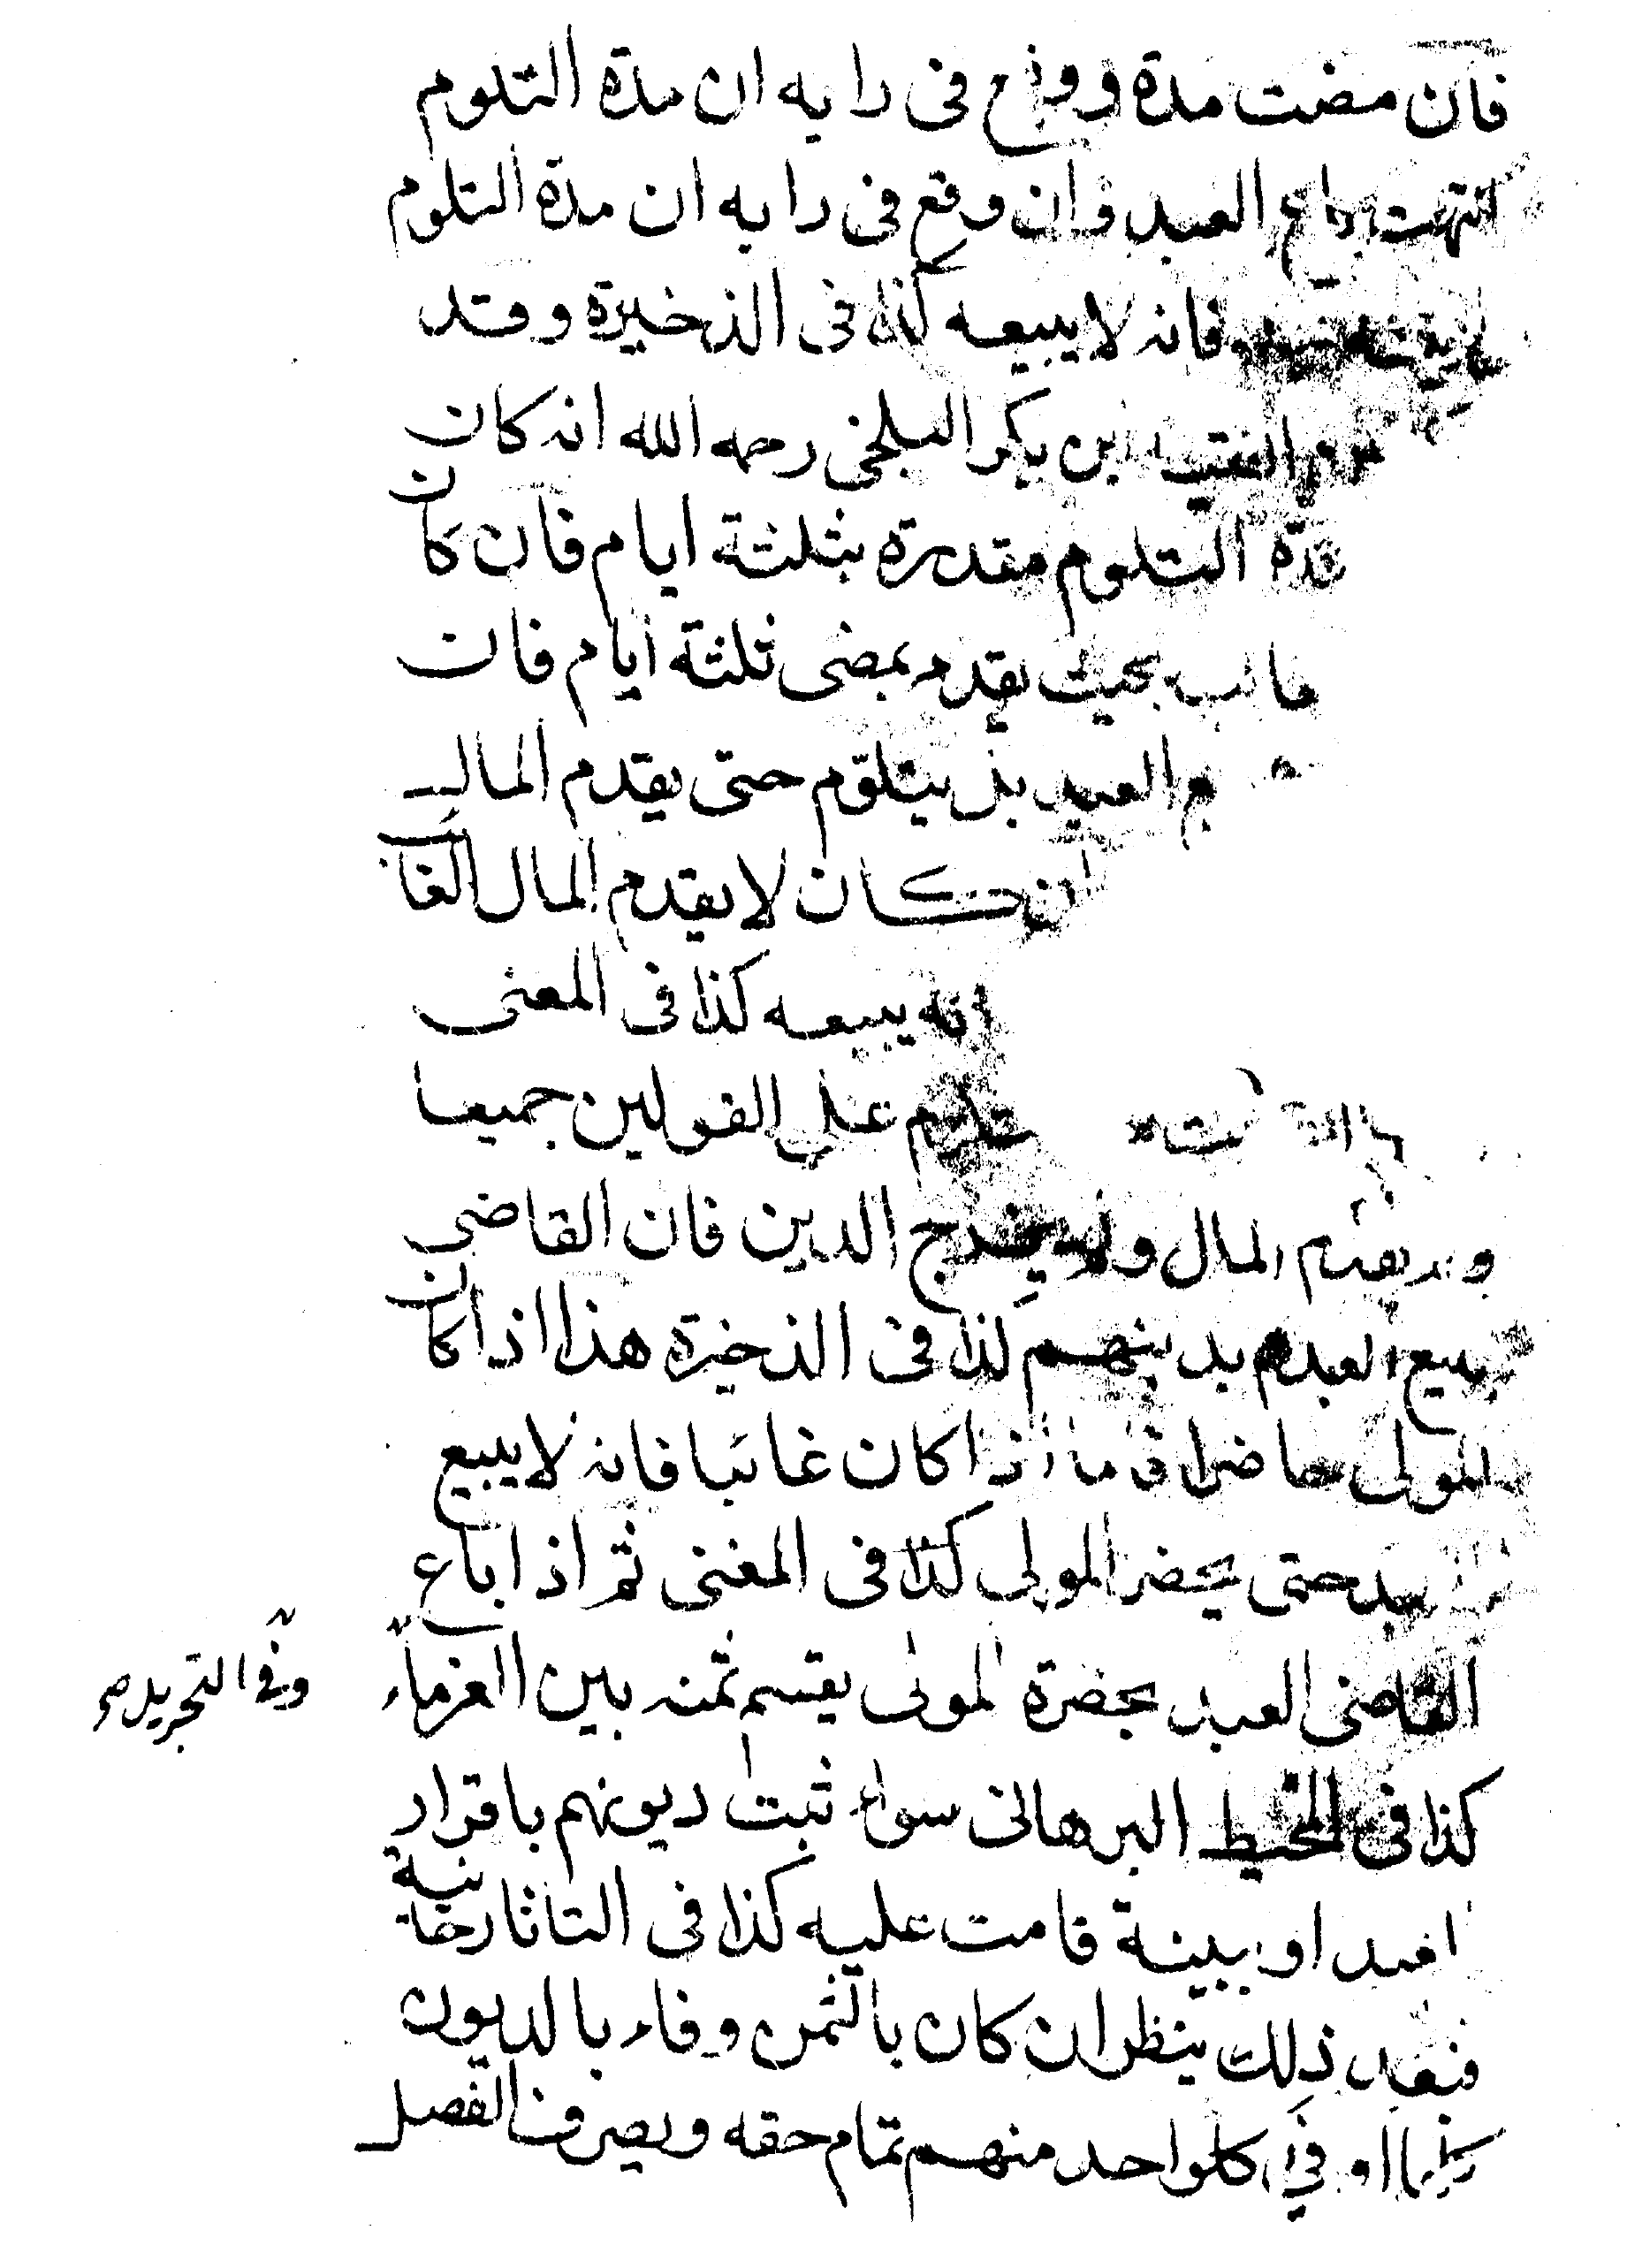 فان مضت مدة ووقع فى رايه ان مدة التلوم
انتهت باع العبد وان وقع فى رايه ان مدة التلوم
فانه لا يبيعه كذا فى الذخيرة وقد
الفقيه ابى بكر البلخى رحمه الله انه كان
مدة التلوم مقدرة بثلثة ايام فان كان
غائب بحيث يقدم بمضى ثلثة ايام فان
العبد بل يتلوم حتى يقدم المال
ان كان لا يقدم المال الغائب
فانه يبيعه كذا فى المغنى
على القولين جميعا
يقدم المال ولم يخرج الدين فان القاضى
يبيع العبد بدينهم كذا فى الذخيرة هذا اذا كان
المولى حاضرا فاما اذا كان غائبا فانه لا يبيع
العبد حتى يحضر المولى كذا فى المغنى ثم اذا باع
القاضى العبد بحضرة المولى يقسم ثمنه بين الغرماء
وفى التجريد صح
كذا فى المحيط البرهانى سواء ثبت ديونهم باقرار
العبد او ببينة قامت عليه كذا فى التاتارخانية
فبعد ذلك ينظر ان كان بالثمن وفاء بالديون
كلها اوفى كلواحد منهم تمام حقه ويصرف الفضل